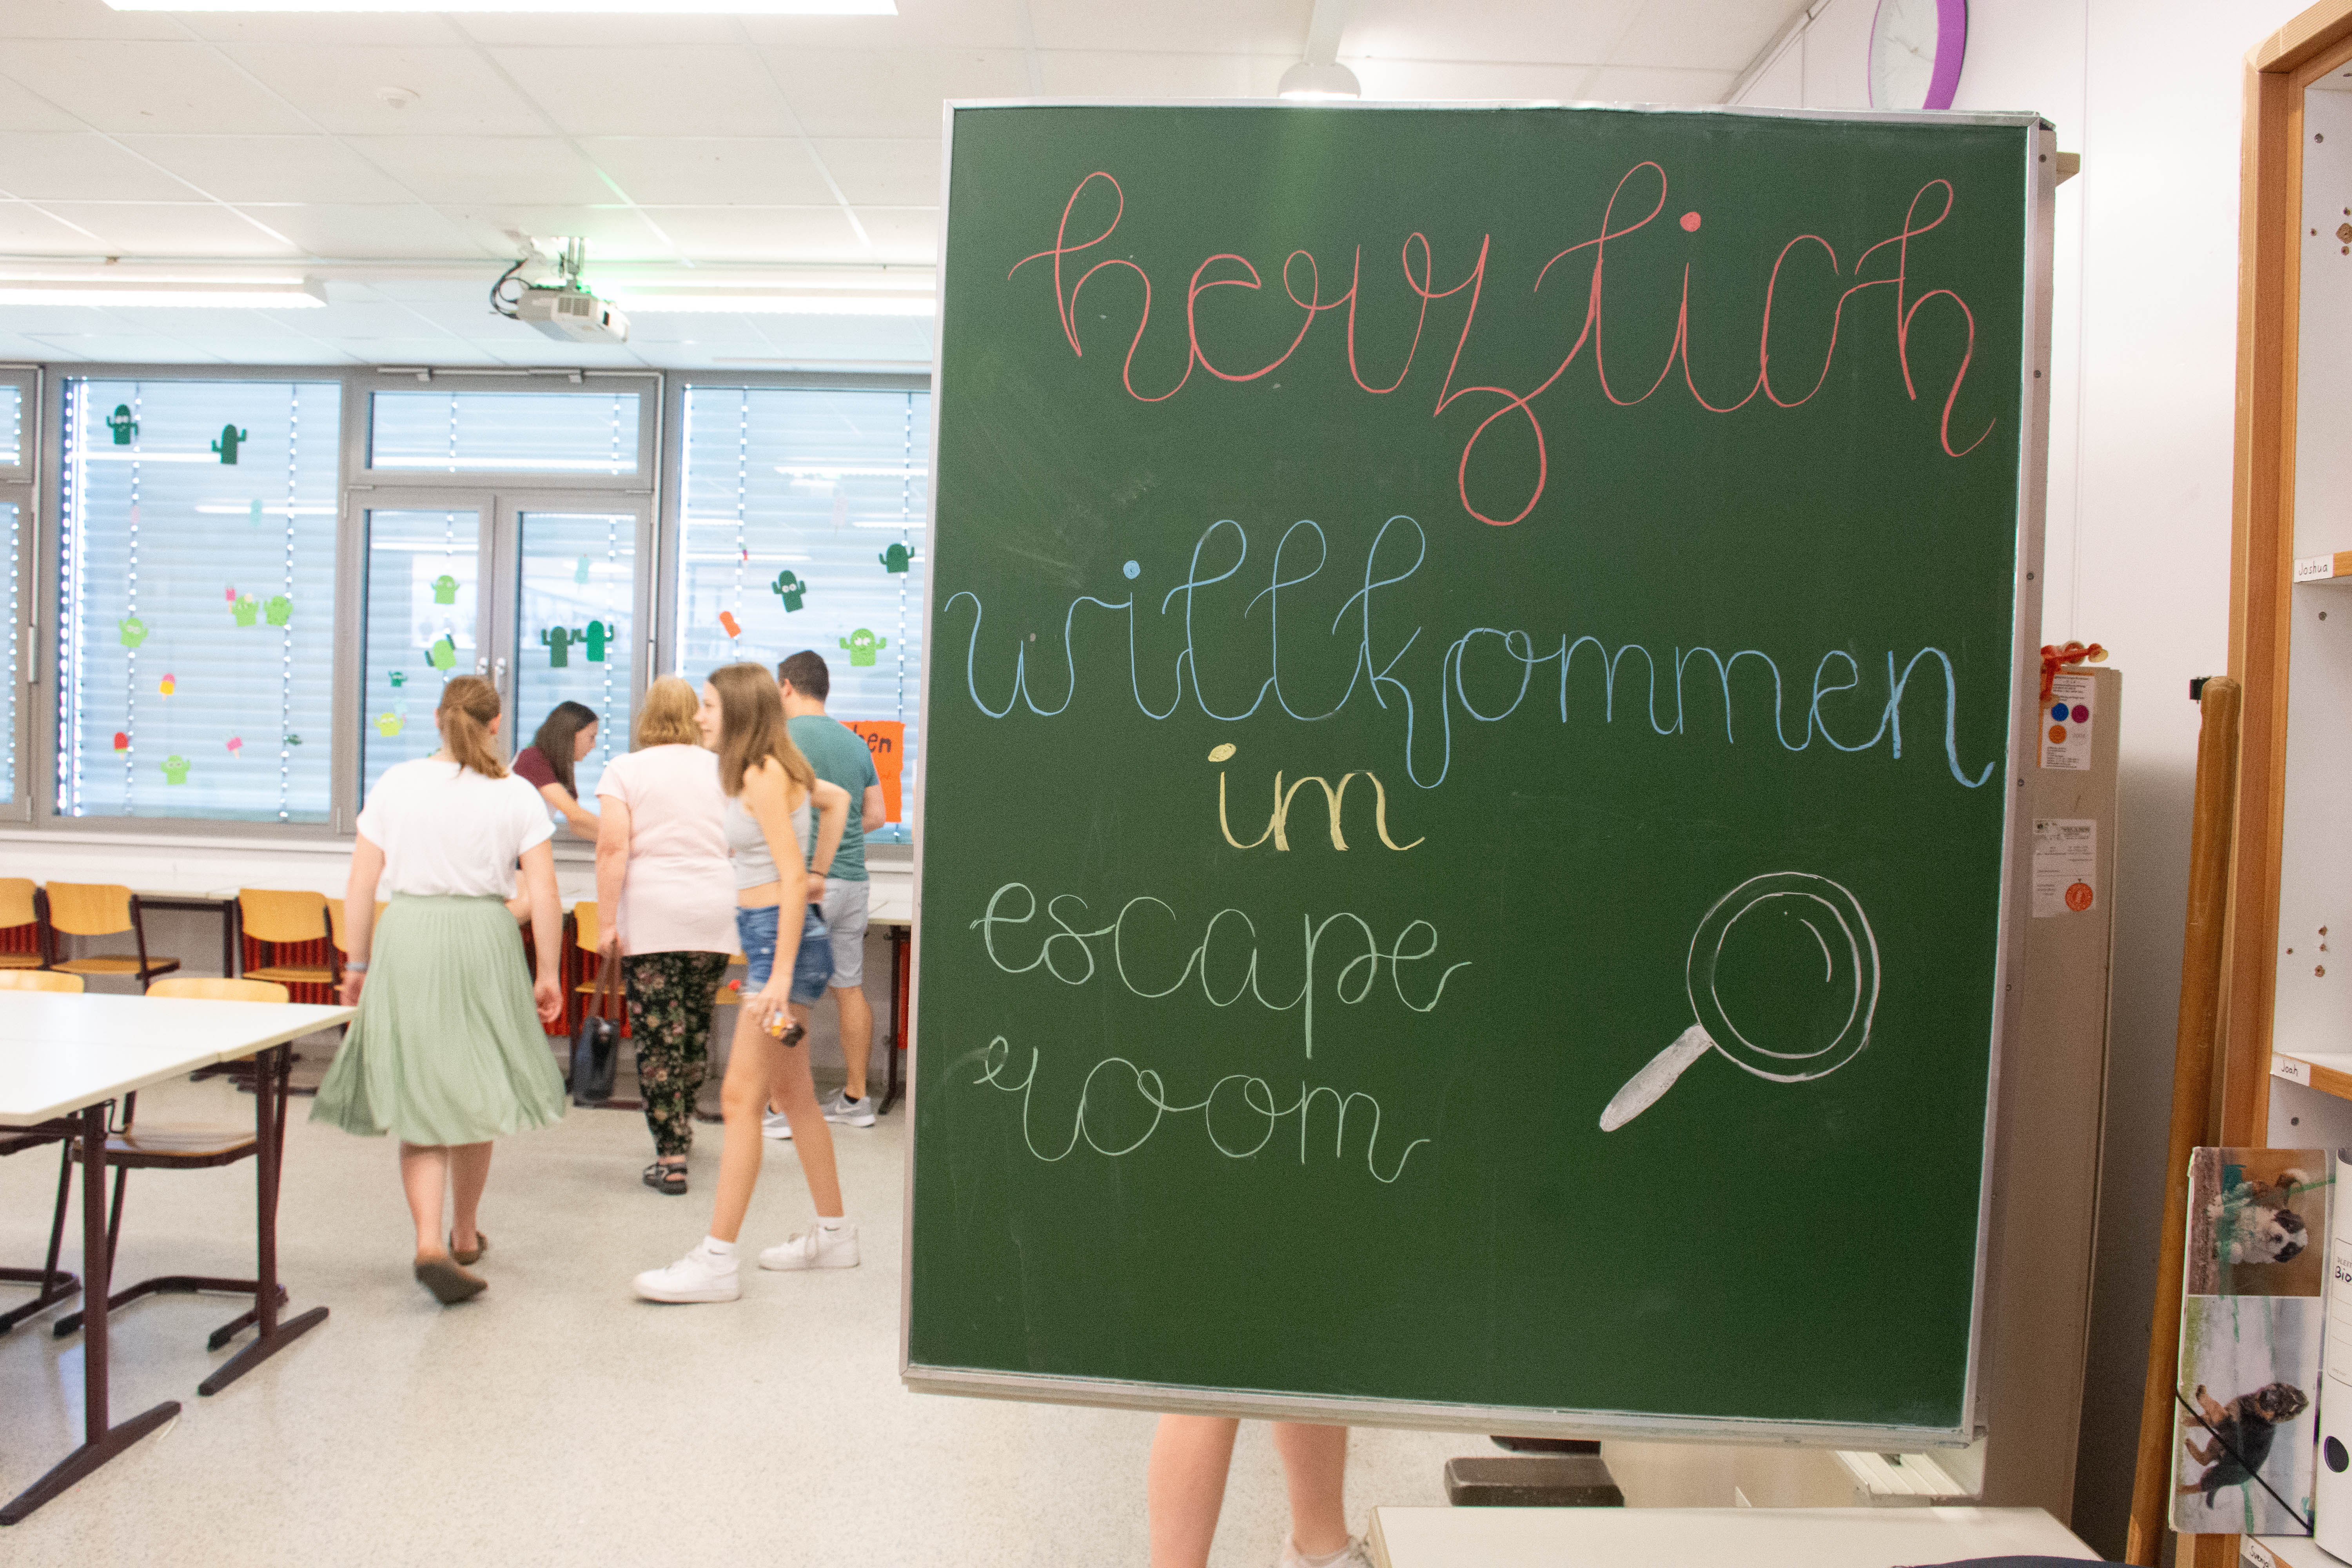 herzlich
willkommen
im
escape
room
Joshua
Joah